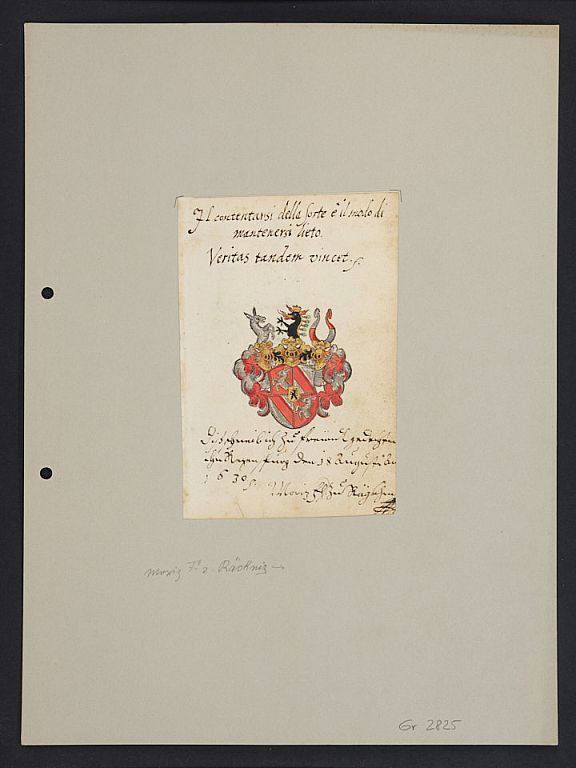 Il contentarsi della sorte è il modo di
mantenersi lieto.
Veritas tandem vincet.
Dis schreib ich zu freündt gedechtnus
zu Regenspurg den 18 Augusti Ao
1630
Moriz Fh zu Rägkhniz
Moriz Fh z. Räckniz →
Gr 2825